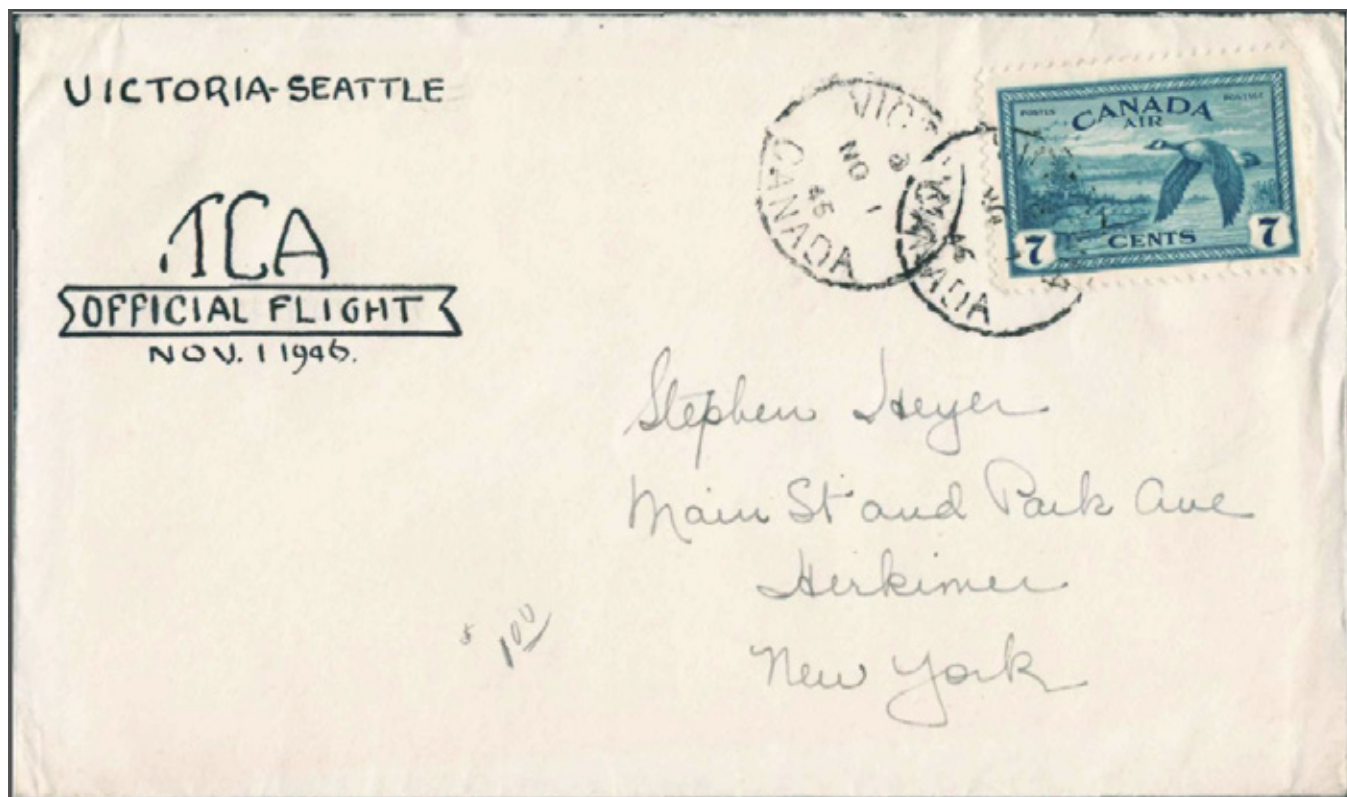 VICTORIA-SEATTLE
TCA
OFFICIAL FLIGHT
NOV. 1 1946.
CANADA
NO 1
46
CANADA
46
POSTES POSTAGE
CANADA
AIR
7 CENTS 7
Stephen Heyer
Main St and Park Ave
Herkimer
New York
$ 1.00